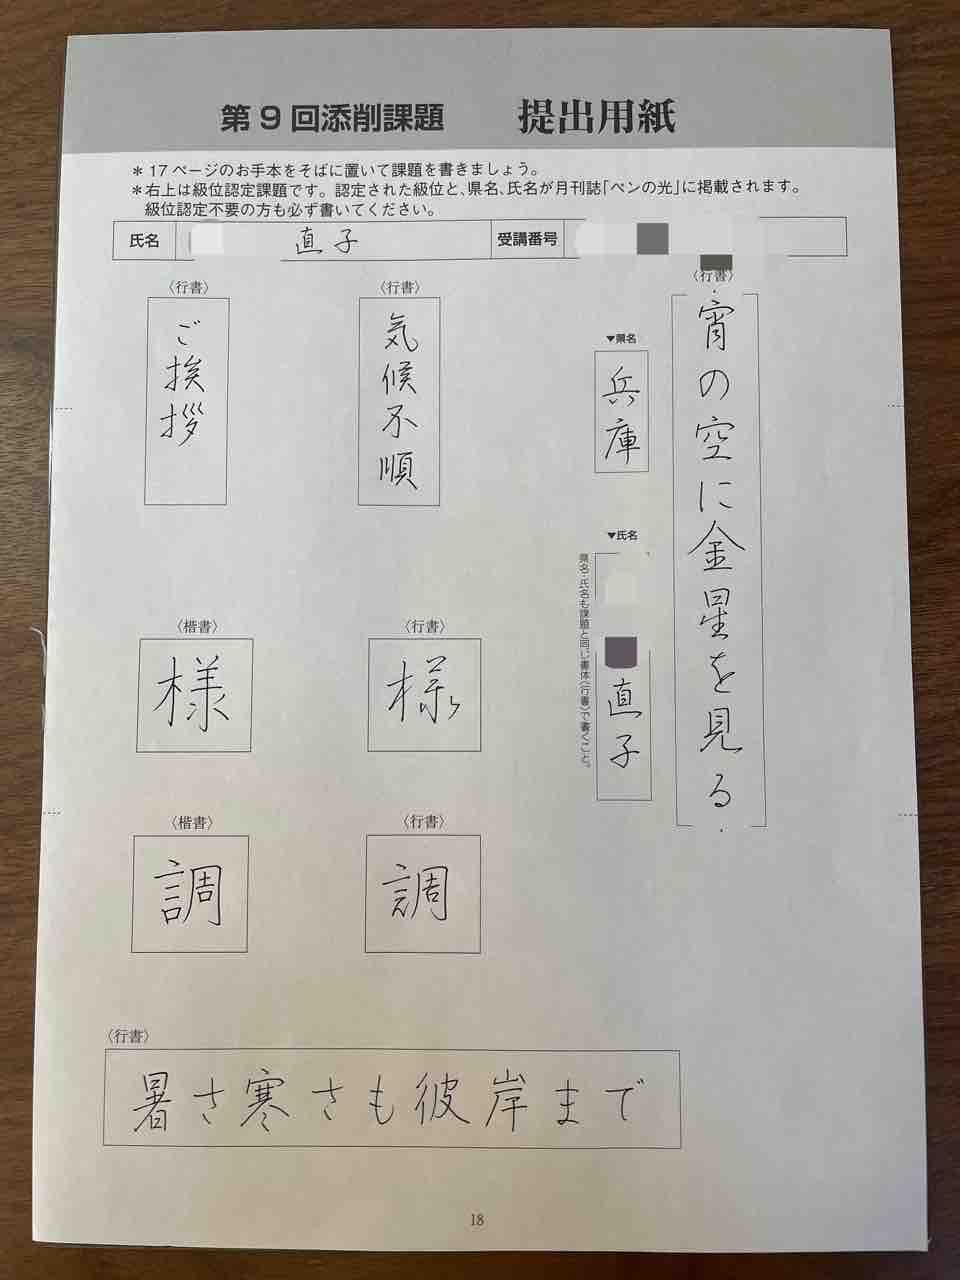 第9回添削課題 提出用紙
＊17ページのお手本をそばに置いて課題を書きましょう。
＊右上は級位認定課題です。認定された級位と、県名、氏名が月刊誌「ペンの光」に掲載されます。
級位認定不要の方も必ず書いてください。
氏名 直子 受講番号
〈行書〉
宵の空に金星を見る
▼県名
兵庫
▼氏名
直子
県名・氏名も課題と同じ書体〈行書〉で書くこと。
〈行書〉
気候不順
〈行書〉
ご挨拶
〈行書〉
様
〈楷書〉
様
〈行書〉
調
〈楷書〉
調
〈行書〉
暑さ寒さも彼岸まで
18